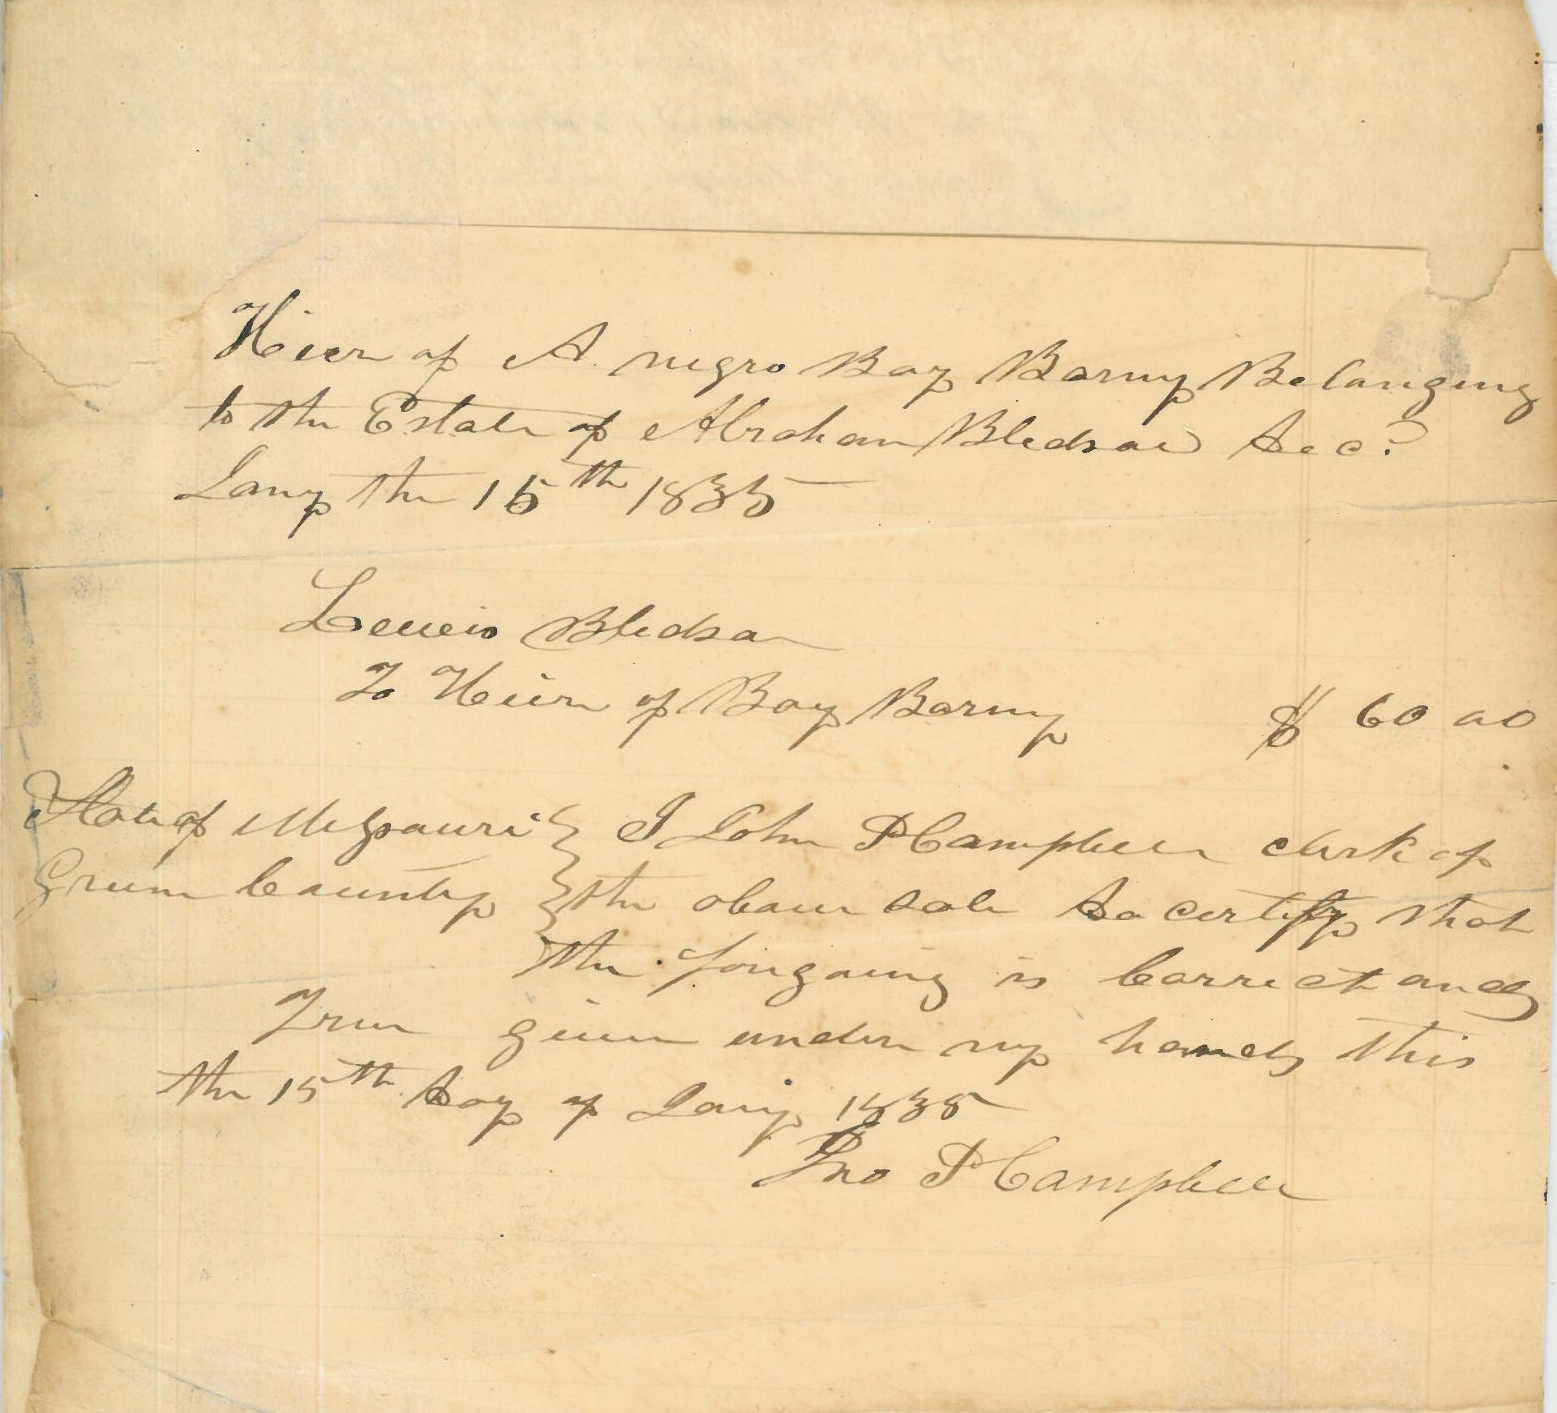 Hiern of A negro Boy Barny Belonging
to the Estate of Abraham Bledsoe Decd
Jany the 15th 1835
Lewis Bledsoe
To Hiern of Boy Barny $ 60 00
State of Missouri } I John P Campbell clerk of
Green County } the above sale Do certify that
the forgoing is Correct and
True given under my hand this
the 15th Day of Jany 1835
Jno P Campbell